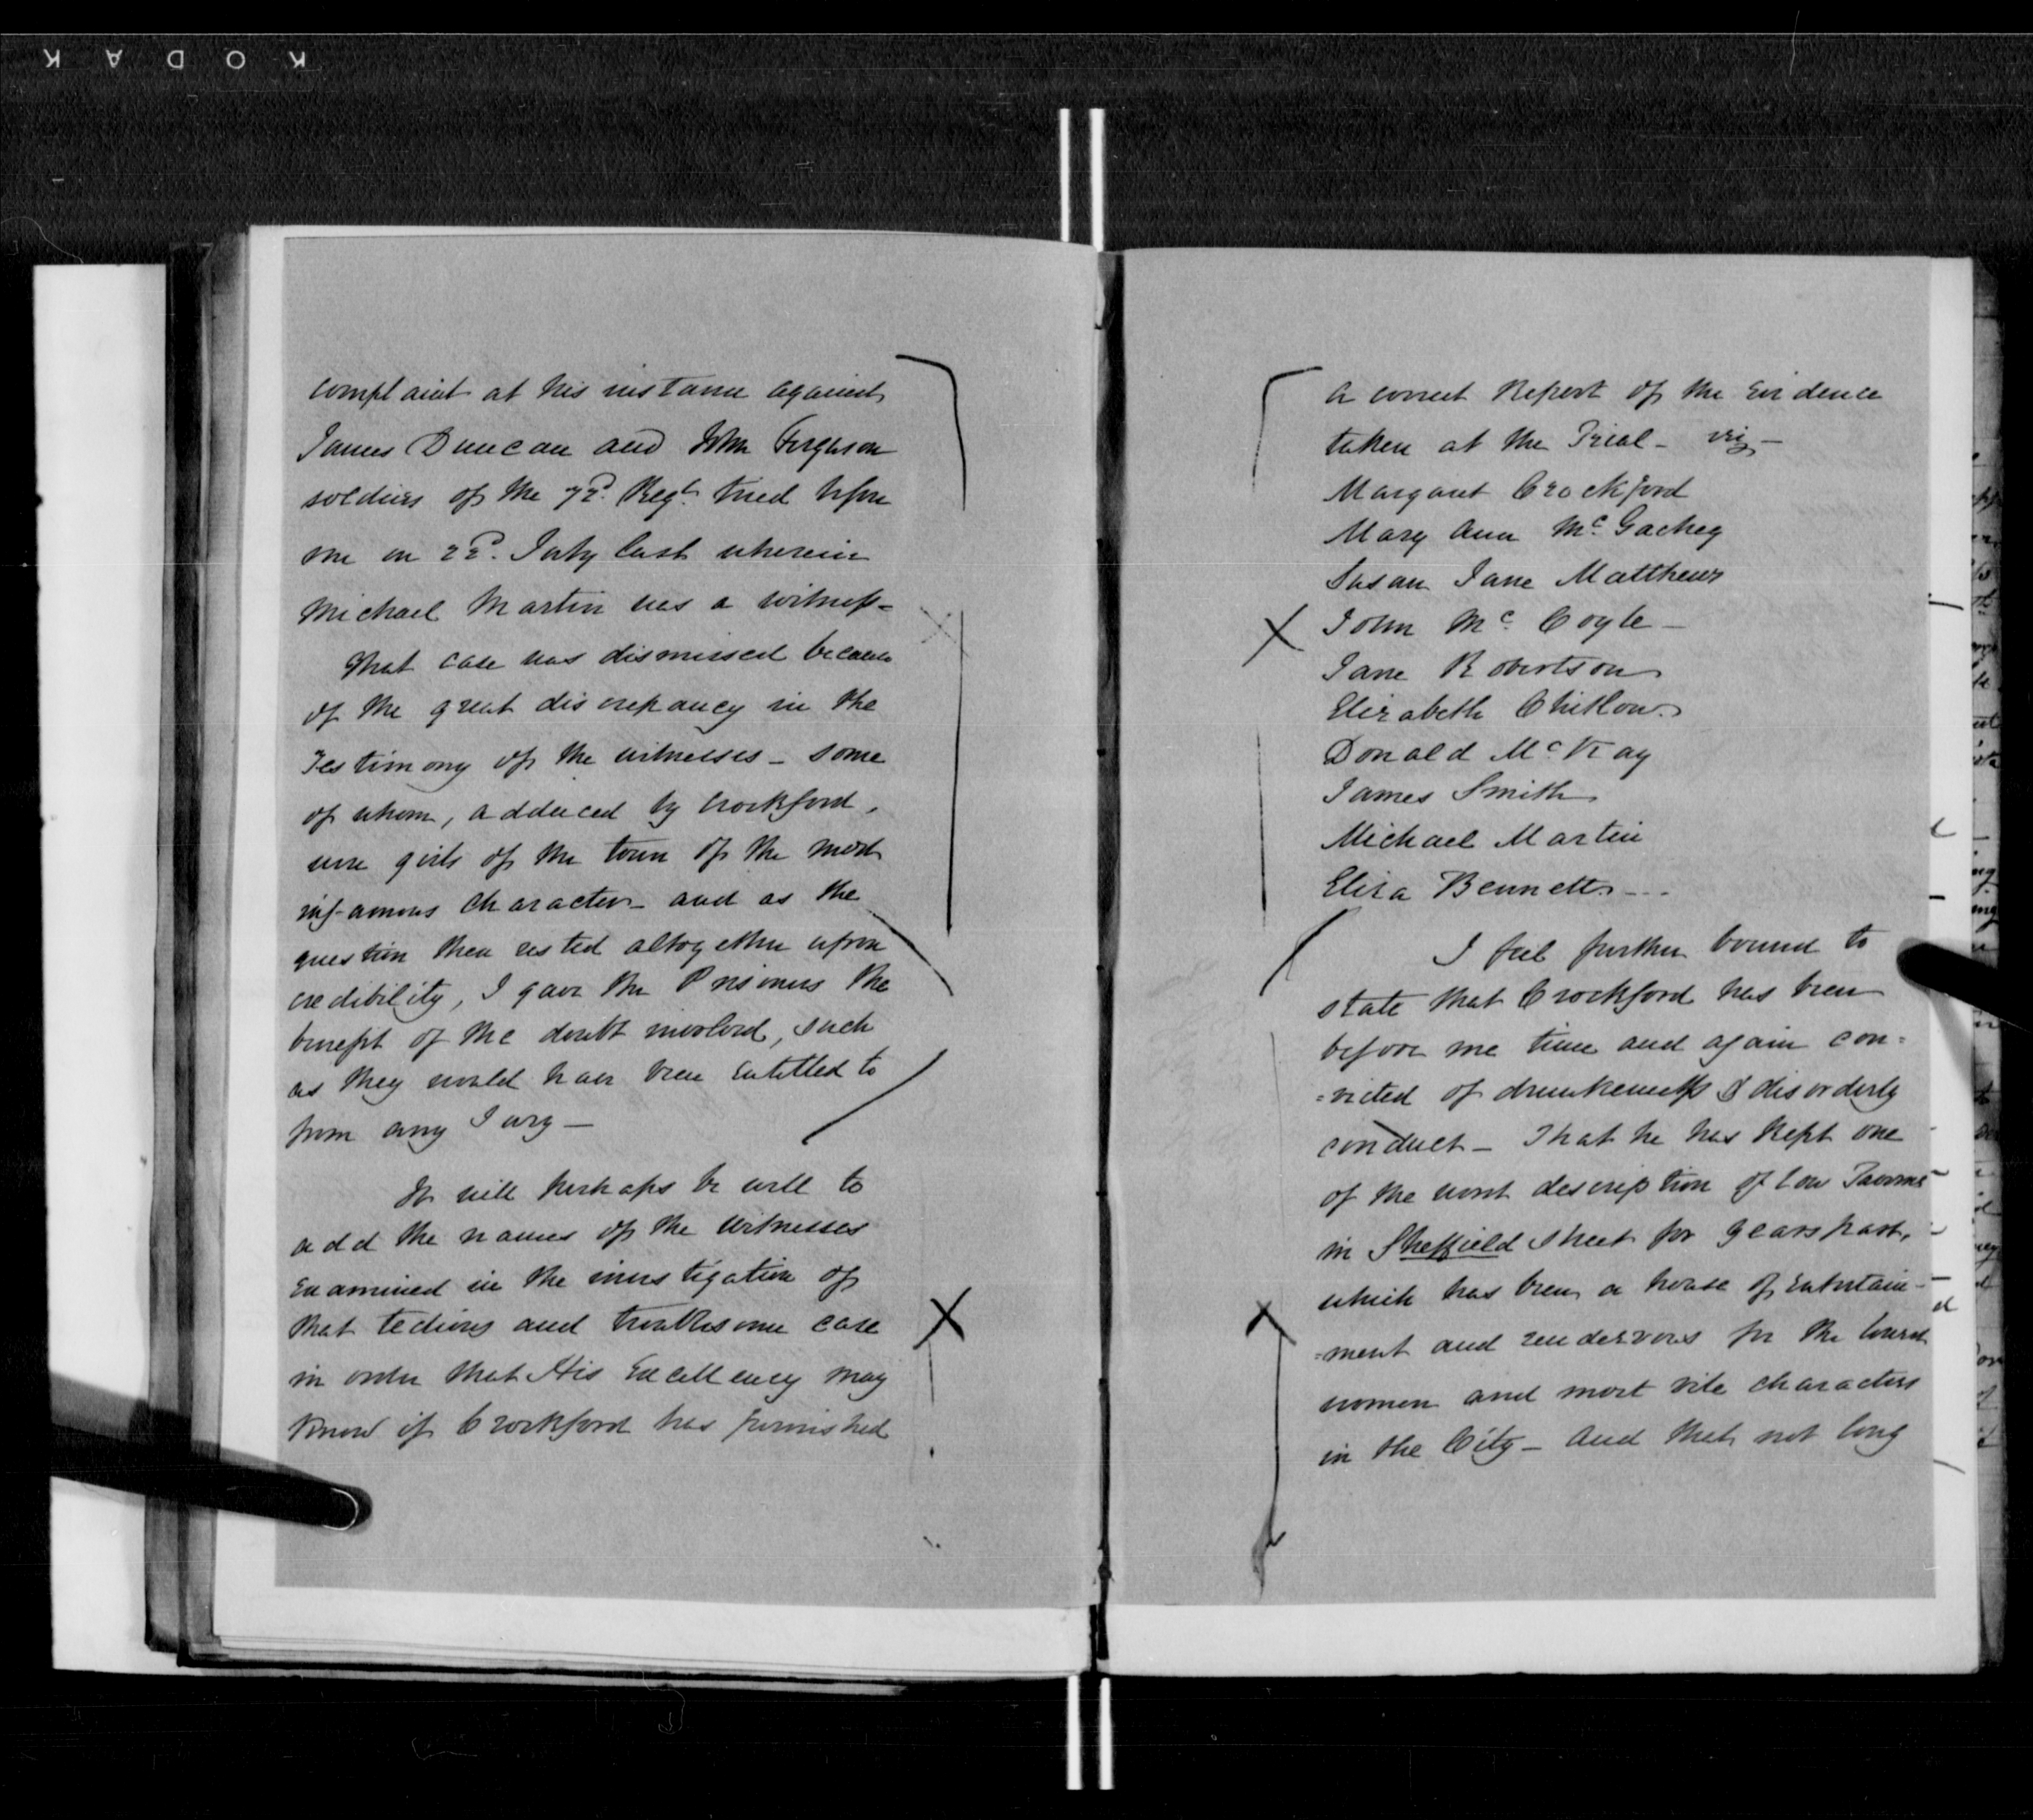 KODAK
complaint at his instance against
James Duncan and John Ferguson
soldiers of the 72d. Regt. tried before
me on 22d. July last wherein
Michael Martin was a witness-
That case was dismissed because
of the great discrepancy in the
Testimony of the witnesses - some
of whom, adduced by Crockford,
were girls of the town of the most
infamous character - and as the
question then rested altogether upon
credibility, I gave the Prisoners the
benefit of the doubt involved, such
as they would have been Entitled to
from any Jury -
It will perhaps be well to
add the names of the Witnesses
Examined in the investigation of
that tedious and troublesome case
in order that His Excellency may
Know if Crockford has furnished
a correct Report of the Evidence
taken at the Trial - viz -
Margaret Crockford
Mary Ann Mc. Gachey
Susan Jane Matthews
X John Mc. Coyle -
Jane Robertson
Elizabeth Chitlow.
Donald Mc Kay
James Smith
Michael Martin
Eliza Bennett - - -
I feel further bound to
state that Crockford has been
before me time and again con=
=victed of drunkenness & disorderly
conduct - That he has Kept one
of the worst description of low Taverns
in Sheffield Street for years past,
which has been a house of Entertain-
=ment and rendezvous for the lowest
women and most vile characters
in the City - And that not long